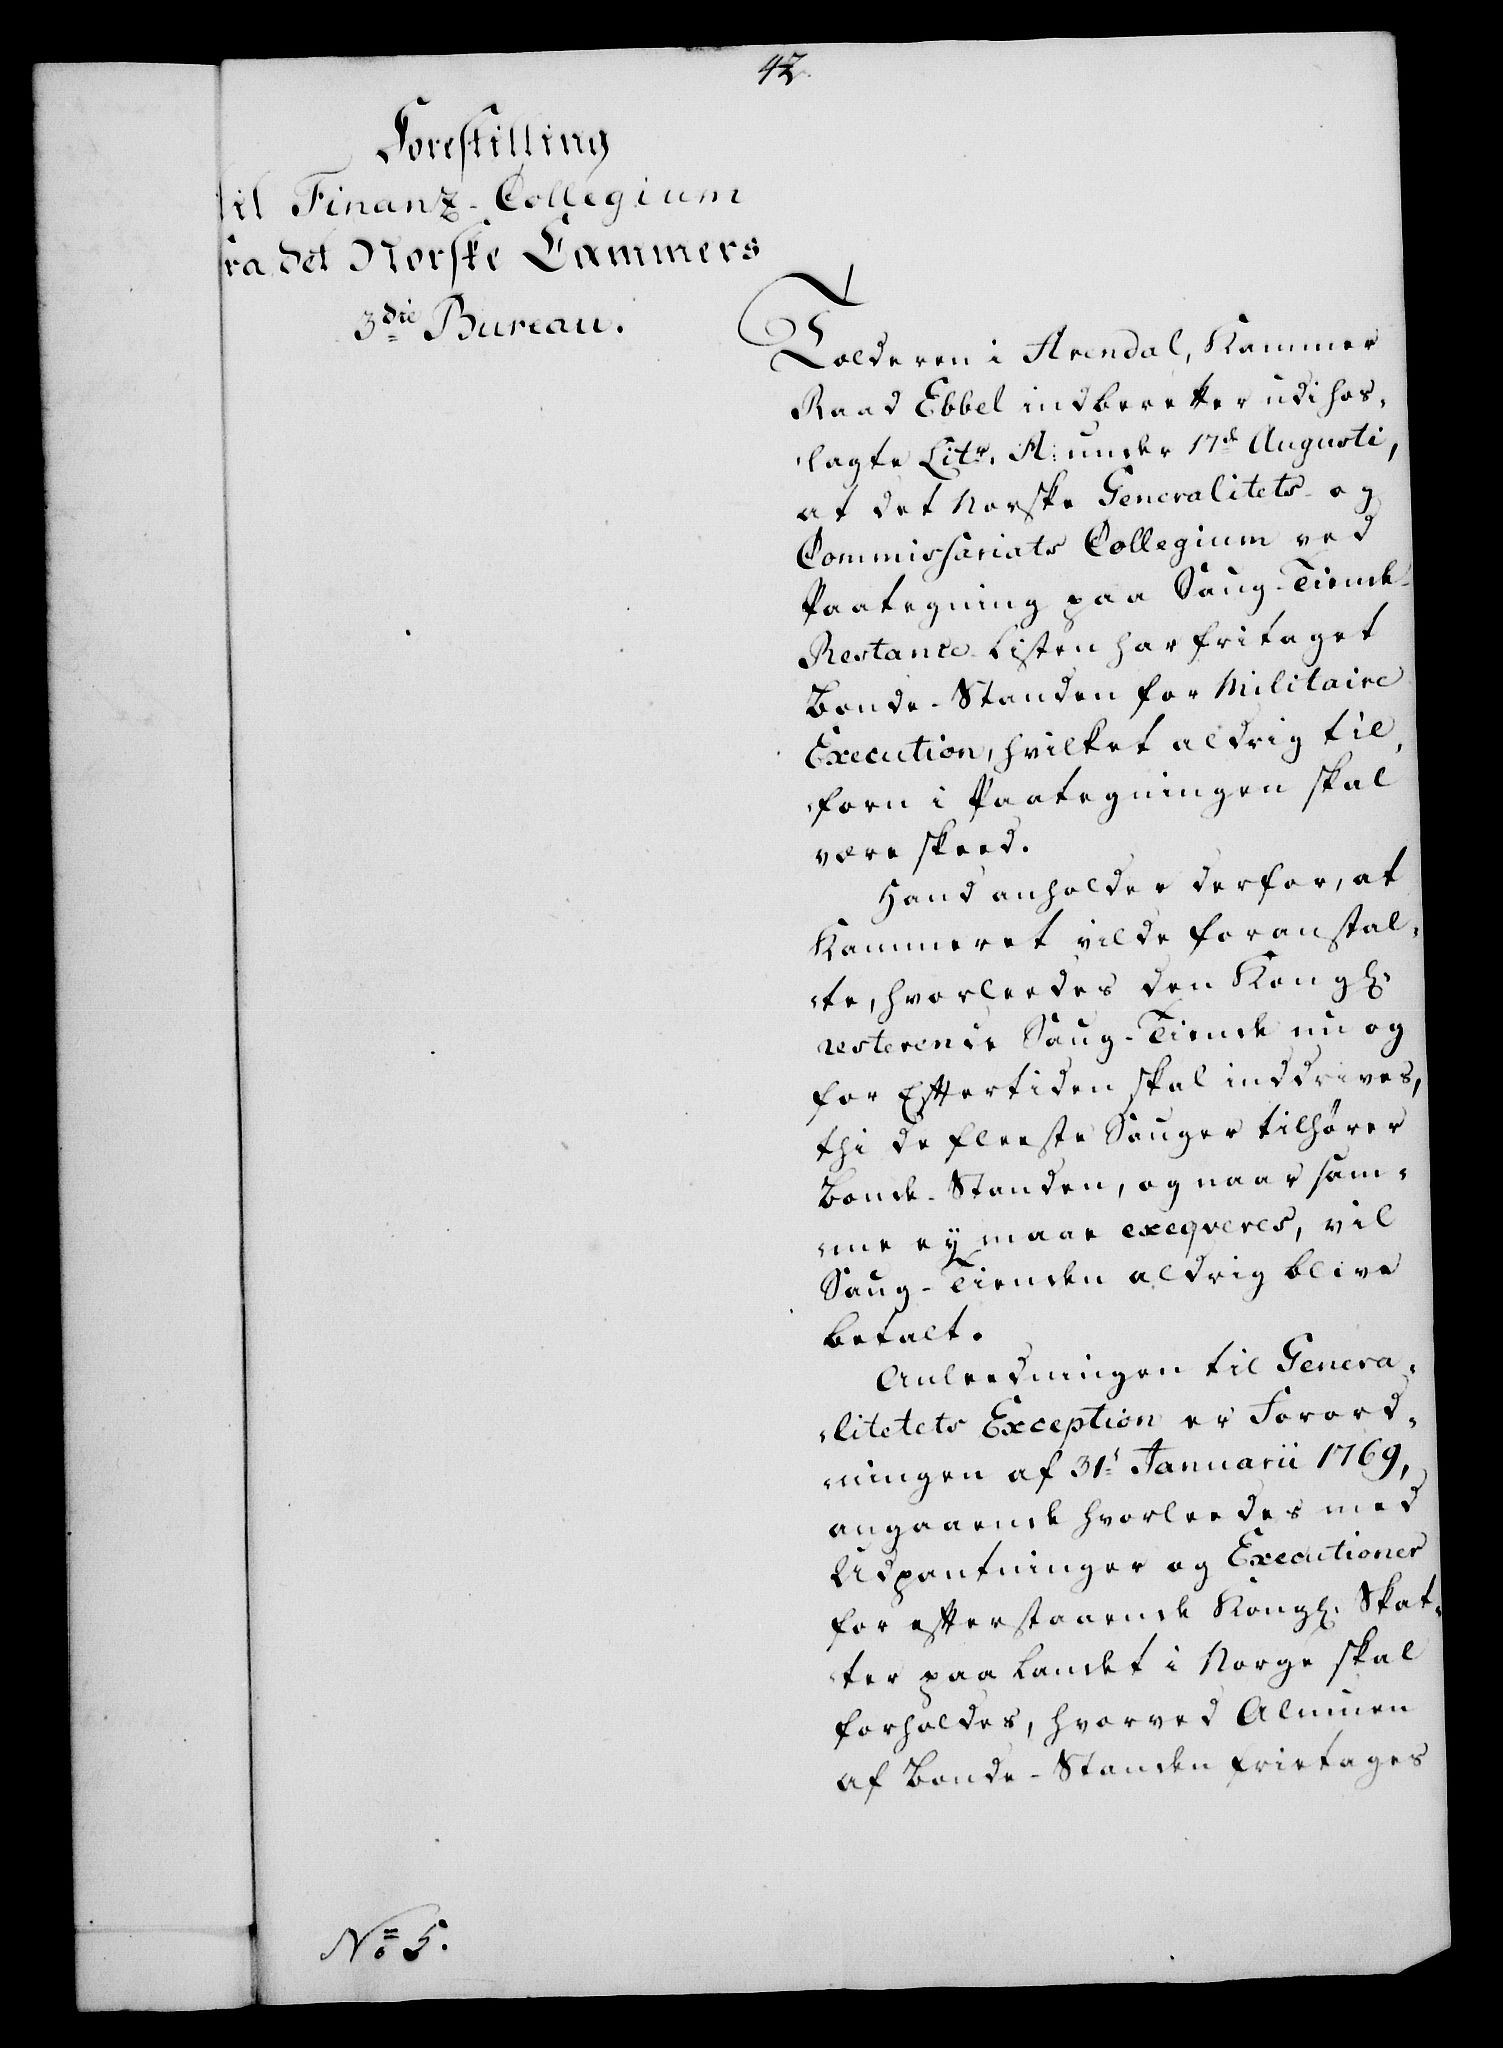 42.
Forestilling
til Finanz-Collegium
fra det Norske Cammers
3die Bureau.
Tolderen i Arendal, Kammer
Raad Ebbel indberetter udi hos-
lagte Litr. A: under 17de Augusti,
at det Norske Generalitets- og
Commissariats Collegium ved
Paategning paa Saug-Tiende-
Restance-Listen har fritaget
Bonde-Standen for Militaire
Execution, hvilket aldrig til-
forn i Paategningen skal
være skeed.
Hand anholder derfor, at
Kammeret vilde foranstal-
te, hvorleedes den Kongl.
resterende Saug-Tiende nu og
for Efftertiden skal inddrives,
thi de fleeste Sauger tilhører
Bonde-Standen, og naar sam-
me ey maae exeqveres, vil
Saug-Tienden aldrig blive
betalt.
Anleedningen til Genera-
litetets Exception er Forord-
ningen af 31te Januarii 1769,
angaaende hvorleedes med
Udpantninger og Executioner
for efterstaaende Kongl. Skat-
ter paa Landet i Norge skal
forholdes, hvorved Almuen
af Bonde-Standen frietages
No 5.